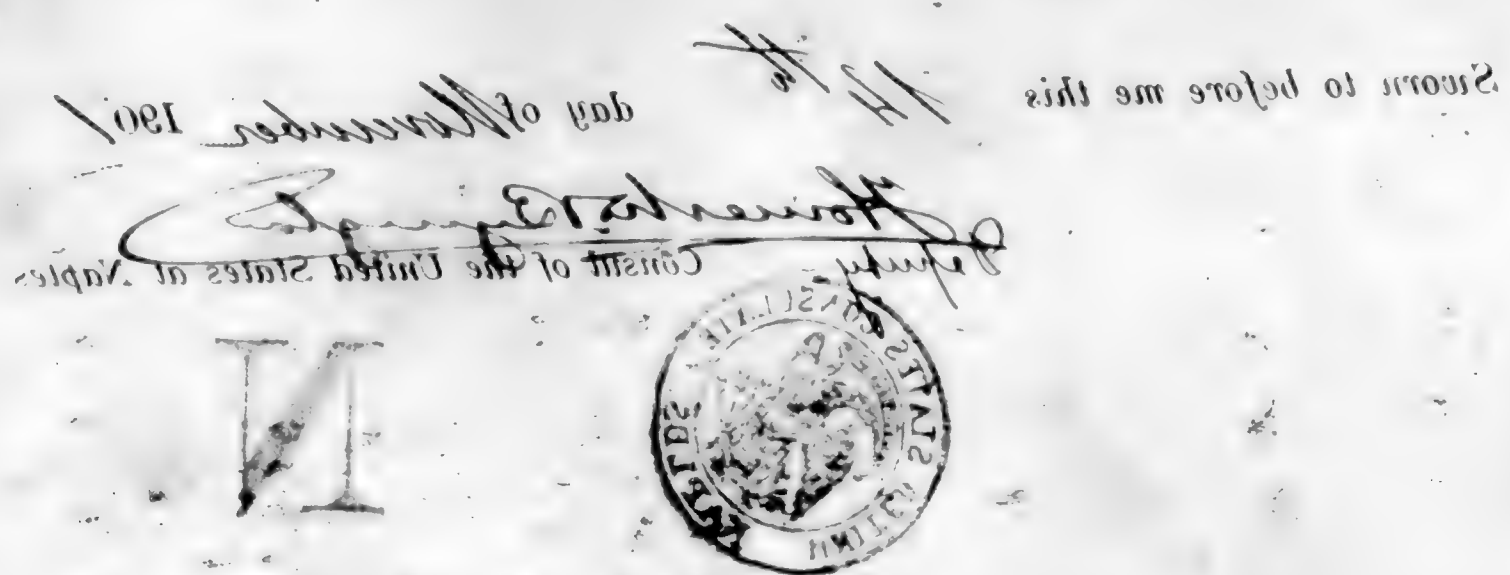 Sworn to before me this 14th day of November 1901
Homer M. Byington
Deputy Consul of the United States at Naples
UNITED STATES CONSULATE NAPLES
N